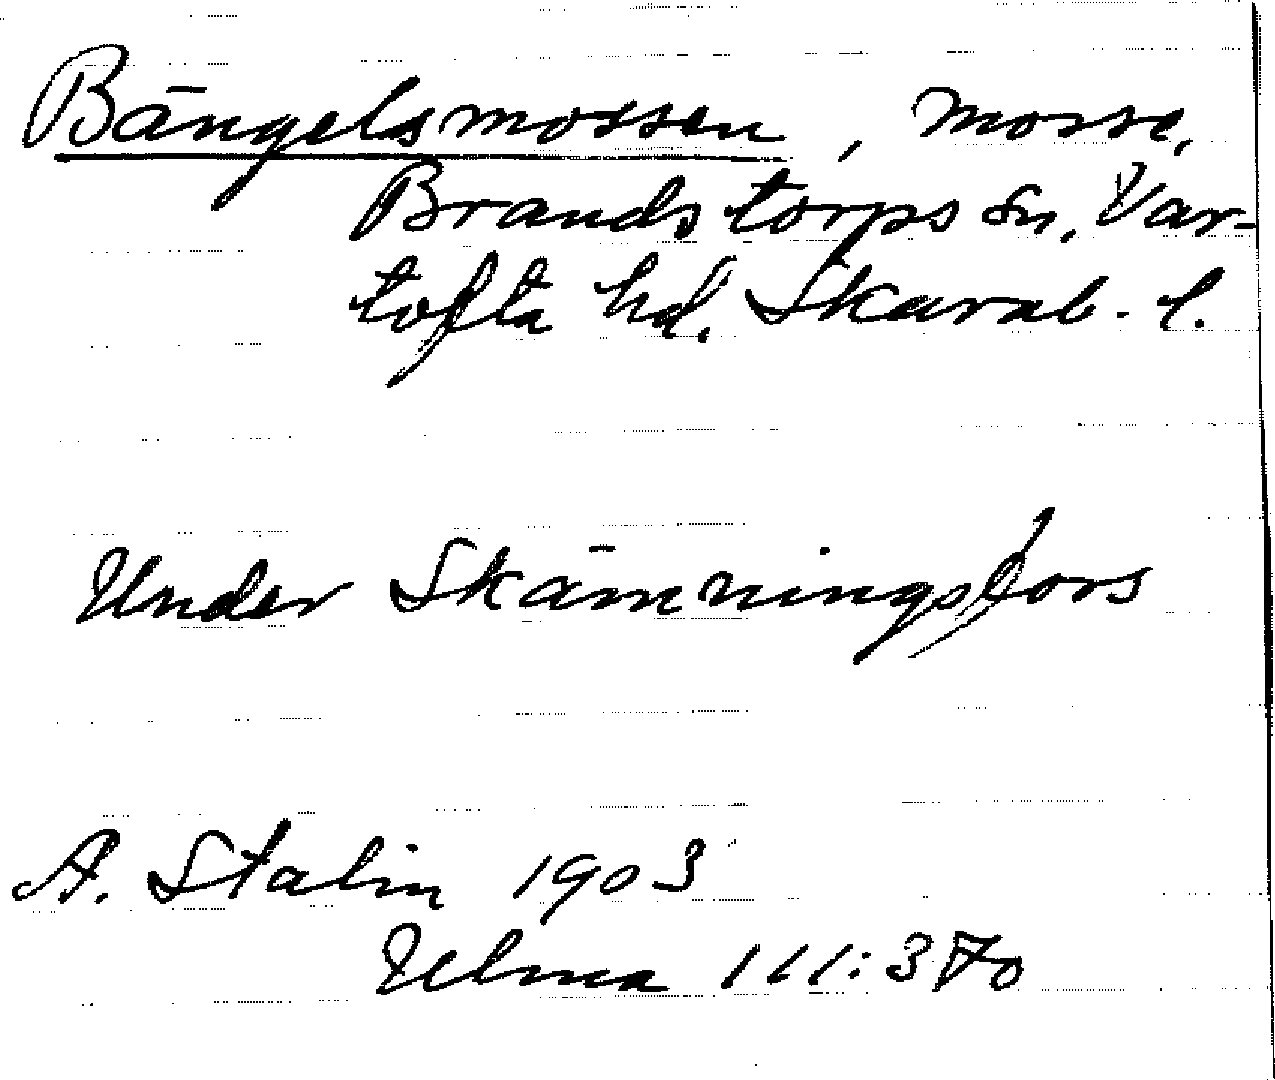 Bängelsmossen, mosse,
Brandstorps sn, Var-
tofta hd. Skarab. l.
Under Skämningsfors
A. Stalin 1903
Ulma 111:370